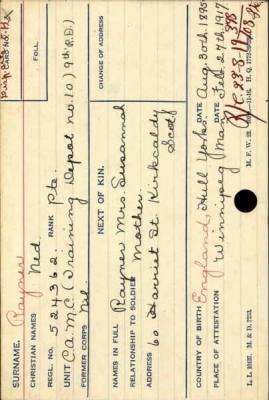 SURNAME. Rayner
CARD NO.
CHRISTIAN NAMES Ned.
FOLL.
REGL. NO. 524362. RANK Pte.
UNIT C.A.M.C. (Training Depot No. 10) 9th R.D.)
FORMER CORPS Nil.
NEXT OF KIN.
CHANGE OF ADDRESS
NAMES IN FULL Rayner Mrs. Susannah
RELATIONSHIP TO SOLDIER Mother
ADDRESS 60 Harriet St. Kirkcaldy
Scot
COUNTRY OF BIRTH England, Hull Yorks. DATE Aug. 30th 1895
PLACE OF ATTESTATION Winnipeg Man DATE Feb. 27th 1917
L. L. M. & D. 7193.
M. F. W. 22